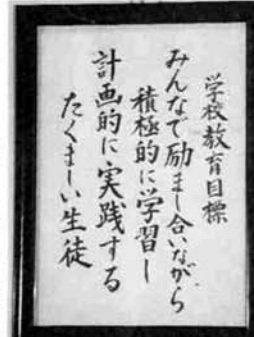 学校教育目標
みんなで励まし合いながら
積極的に学習し
計画的に実践する
たくましい生徒